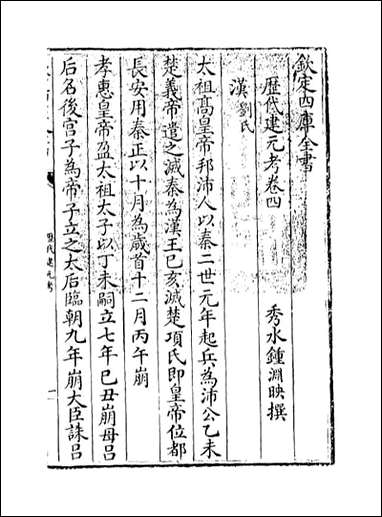 欽定四庫全書
歷代建元考卷四
秀水鍾淵映撰
漢劉氏
太祖髙皇帝邦沛人以秦二世元年起兵為沛公乙未
楚義帝遣之滅秦為漢王己亥滅楚項氏即皇帝位都
長安用秦正以十月為歲首十二月丙午崩
孝惠皇帝盈太祖太子以丁未嗣立七年己丑崩母吕
后名後宫子為帝子立之太后臨朝九年崩大臣誅吕
歷代建元考
一